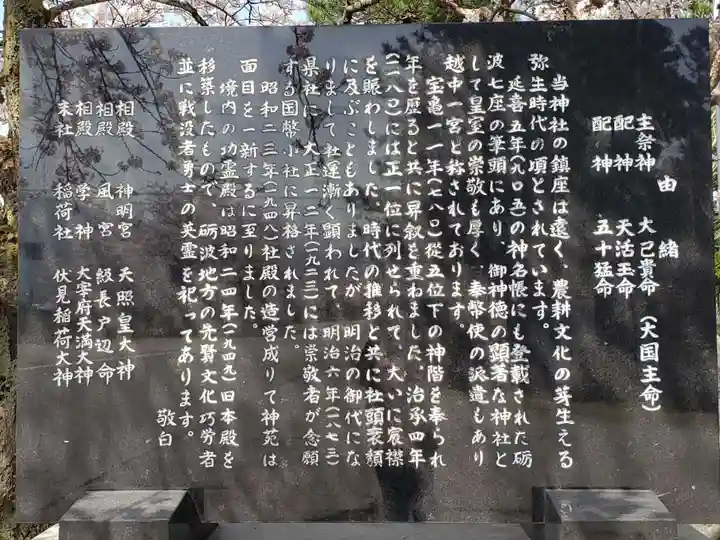 由緒
主祭神 大己貴命(大国主命)
配神 天活玉命
配神 五十猛命
当神社の鎮座は遠く、農耕文化の芽生える
弥生時代の頃とされています。
延喜五年(九〇五)の神名帳にも登載された砺
波七座の筆頭にあり、御神徳の顕著な神社と
して皇室の崇敬も厚く、奉幣使の派遣もあり
越中一宮と称されております。
宝亀一一年(七八〇)従五位下の神階を奉られ
年を歴ると共に昇叙を重ねました。治承四年
(一一八〇)には正一位に列せられて、大いに宸襟
を賑わしました。時代の推移と共に社頭衰頽
に及ぶこともありましたが、明治の御代にな
りまして社運漸く顕われて、明治六年(一八七三)
県社に、大正一二年(一九二三)には崇敬者が念願
する国幣小社に昇格されました。
昭和二三年(一九四八)社殿の造営成りて神苑は
面目を一新するに至りました。
境内の功霊殿は昭和二四年(一九四九)旧本殿を
移築したもので、砺波地方の先賢文化功労者
並に戦没者勇士の英霊を祀ってあります。
敬白
相殿 神明宮 天照皇大神
相殿 風宮 級長戸辺命
相殿 学神 大宰府天満大神
末社 稲荷社 伏見稲荷大神